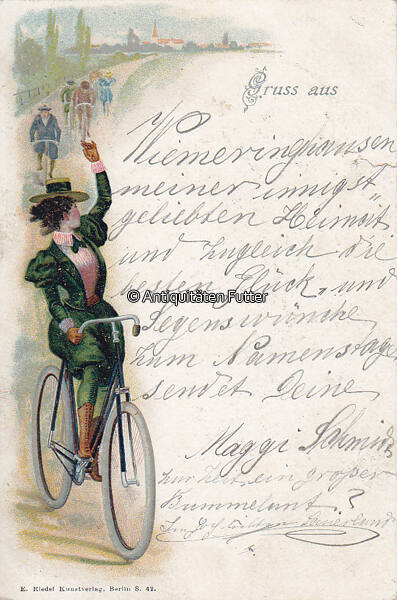 Gruss aus
Wiemeringhausen
meiner innigst
geliebten Heimat
und zugleich die
besten Glück- und
© Antiquitäten Futter
Segenswünsche
zum Namenstage
sendet Deine
Maggi Schmidt
zur Zeit ein großer
Bummelant?
Sauerland
E. Riedel Kunstverlag, Berlin S. 42.